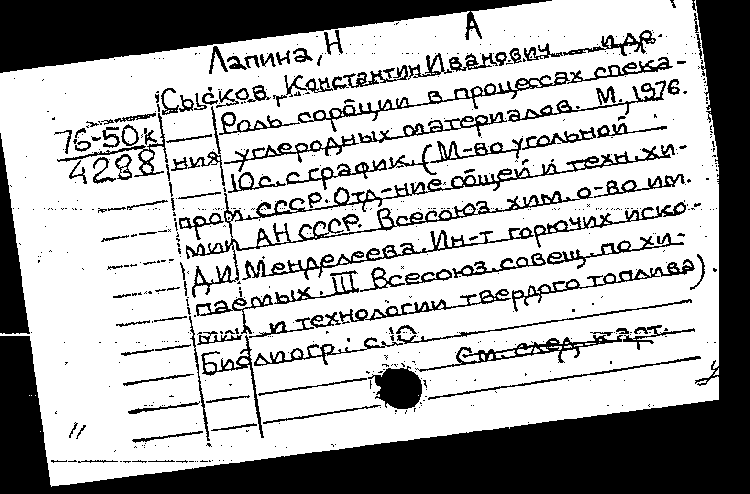 Лапина, Н А
Сысков, Константин Иванович и др.
76-50к
4288
Роль сорбции в процессах спека-
ния углеродных материалов. М., 1976.
10 с. с график. (М-во угольной
пром. СССР. Отд-ние общей и техн. хи-
мии АН СССР. Всесоюз. хим. о-во им.
Д.И. Менделеева. Ин-т горючих иско-
паемых. III Всесоюз. совещ. по хи-
мии и технологии твердого топлива).
Библиогр.: с. 10.
См. след. карт.